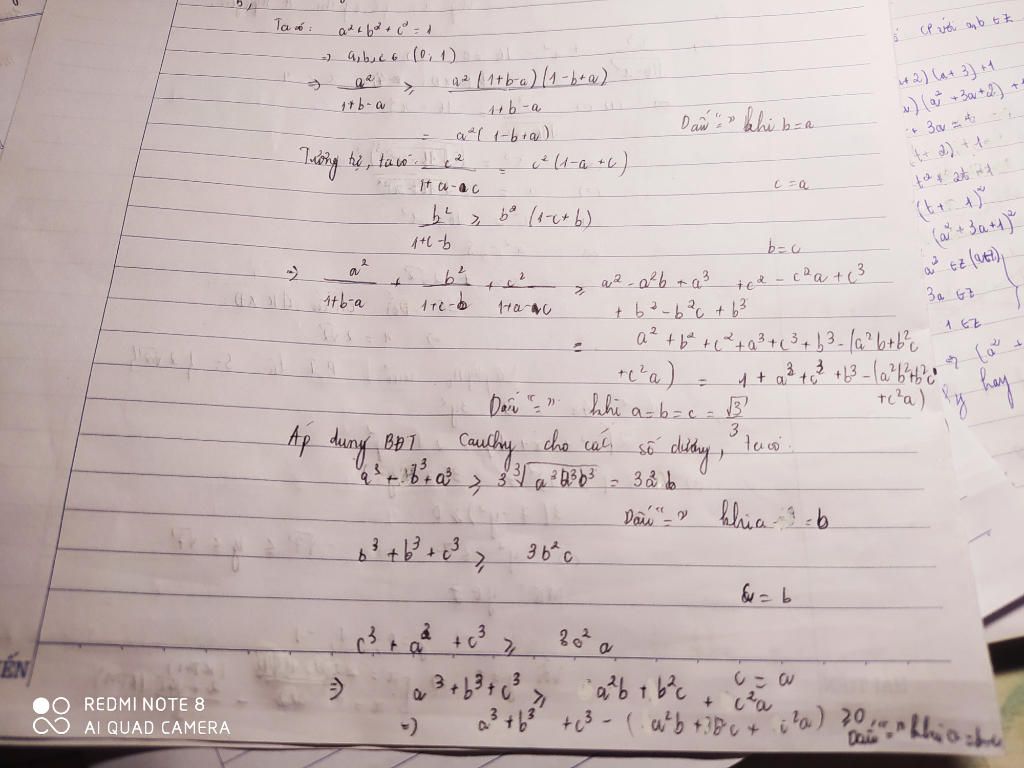 Ta có: a² + b² + c² = 1
⇒ a,b,c ∈ (0; 1)
⇒ a²/(1+b-a) ≥ a²(1+b-a)(1-b+a)/(1+b-a)
= a²(1-b+a) Dấu "=" khi b=a
Tương tự, ta có: c²/(1+a-c) = c²(1-a+c)
c=a
b²/(1+c-b) ≥ b²(1-c+b)
b=c
⇒ a²/(1+b-a) + b²/(1+c-b) + c²/(1+a-c) ≥ a² - a²b + a³ + c² - c²a + c³
+ b² - b²c + b³
= a² + b² + c² + a³ + c³ + b³ - (a²b + b²c
+ c²a) = 1 + a³ + c³ + b³ - (a²b² + b²c
+ c²a)
Dấu "=" khi a=b=c = √3/3
Áp dụng BĐT Cauchy cho các số dương, ta có:
a³ + b³ + a³ ≥ 3∛(a³a³b³) = 3a²b
Dấu "=" khi a = b
b³ + b³ + c³ ≥ 3b²c
= b
c³ + a³ + c³ ≥ 3c²a
c = a
⇒ a³ + b³ + c³ ≥ a²b + b²c + c²a
⇒ a³ + b³ + c³ - (a²b + b²c + c²a) ≥ 0, Dấu "=" khi a=b=c
CP với a,b ∈ Z
+2)(a+3)+1
(a² + 3a + 2)
+ 3a = t
(t + 2) + 1
t² + 2t + 1
(t + 1)²
(a² + 3a + 1)²
a² ∈ Z (a∈Z)
3a ∈ Z
1 ∈ Z
⇒ (a² +
hay
ẾN
REDMI NOTE 8
AI QUAD CAMERA